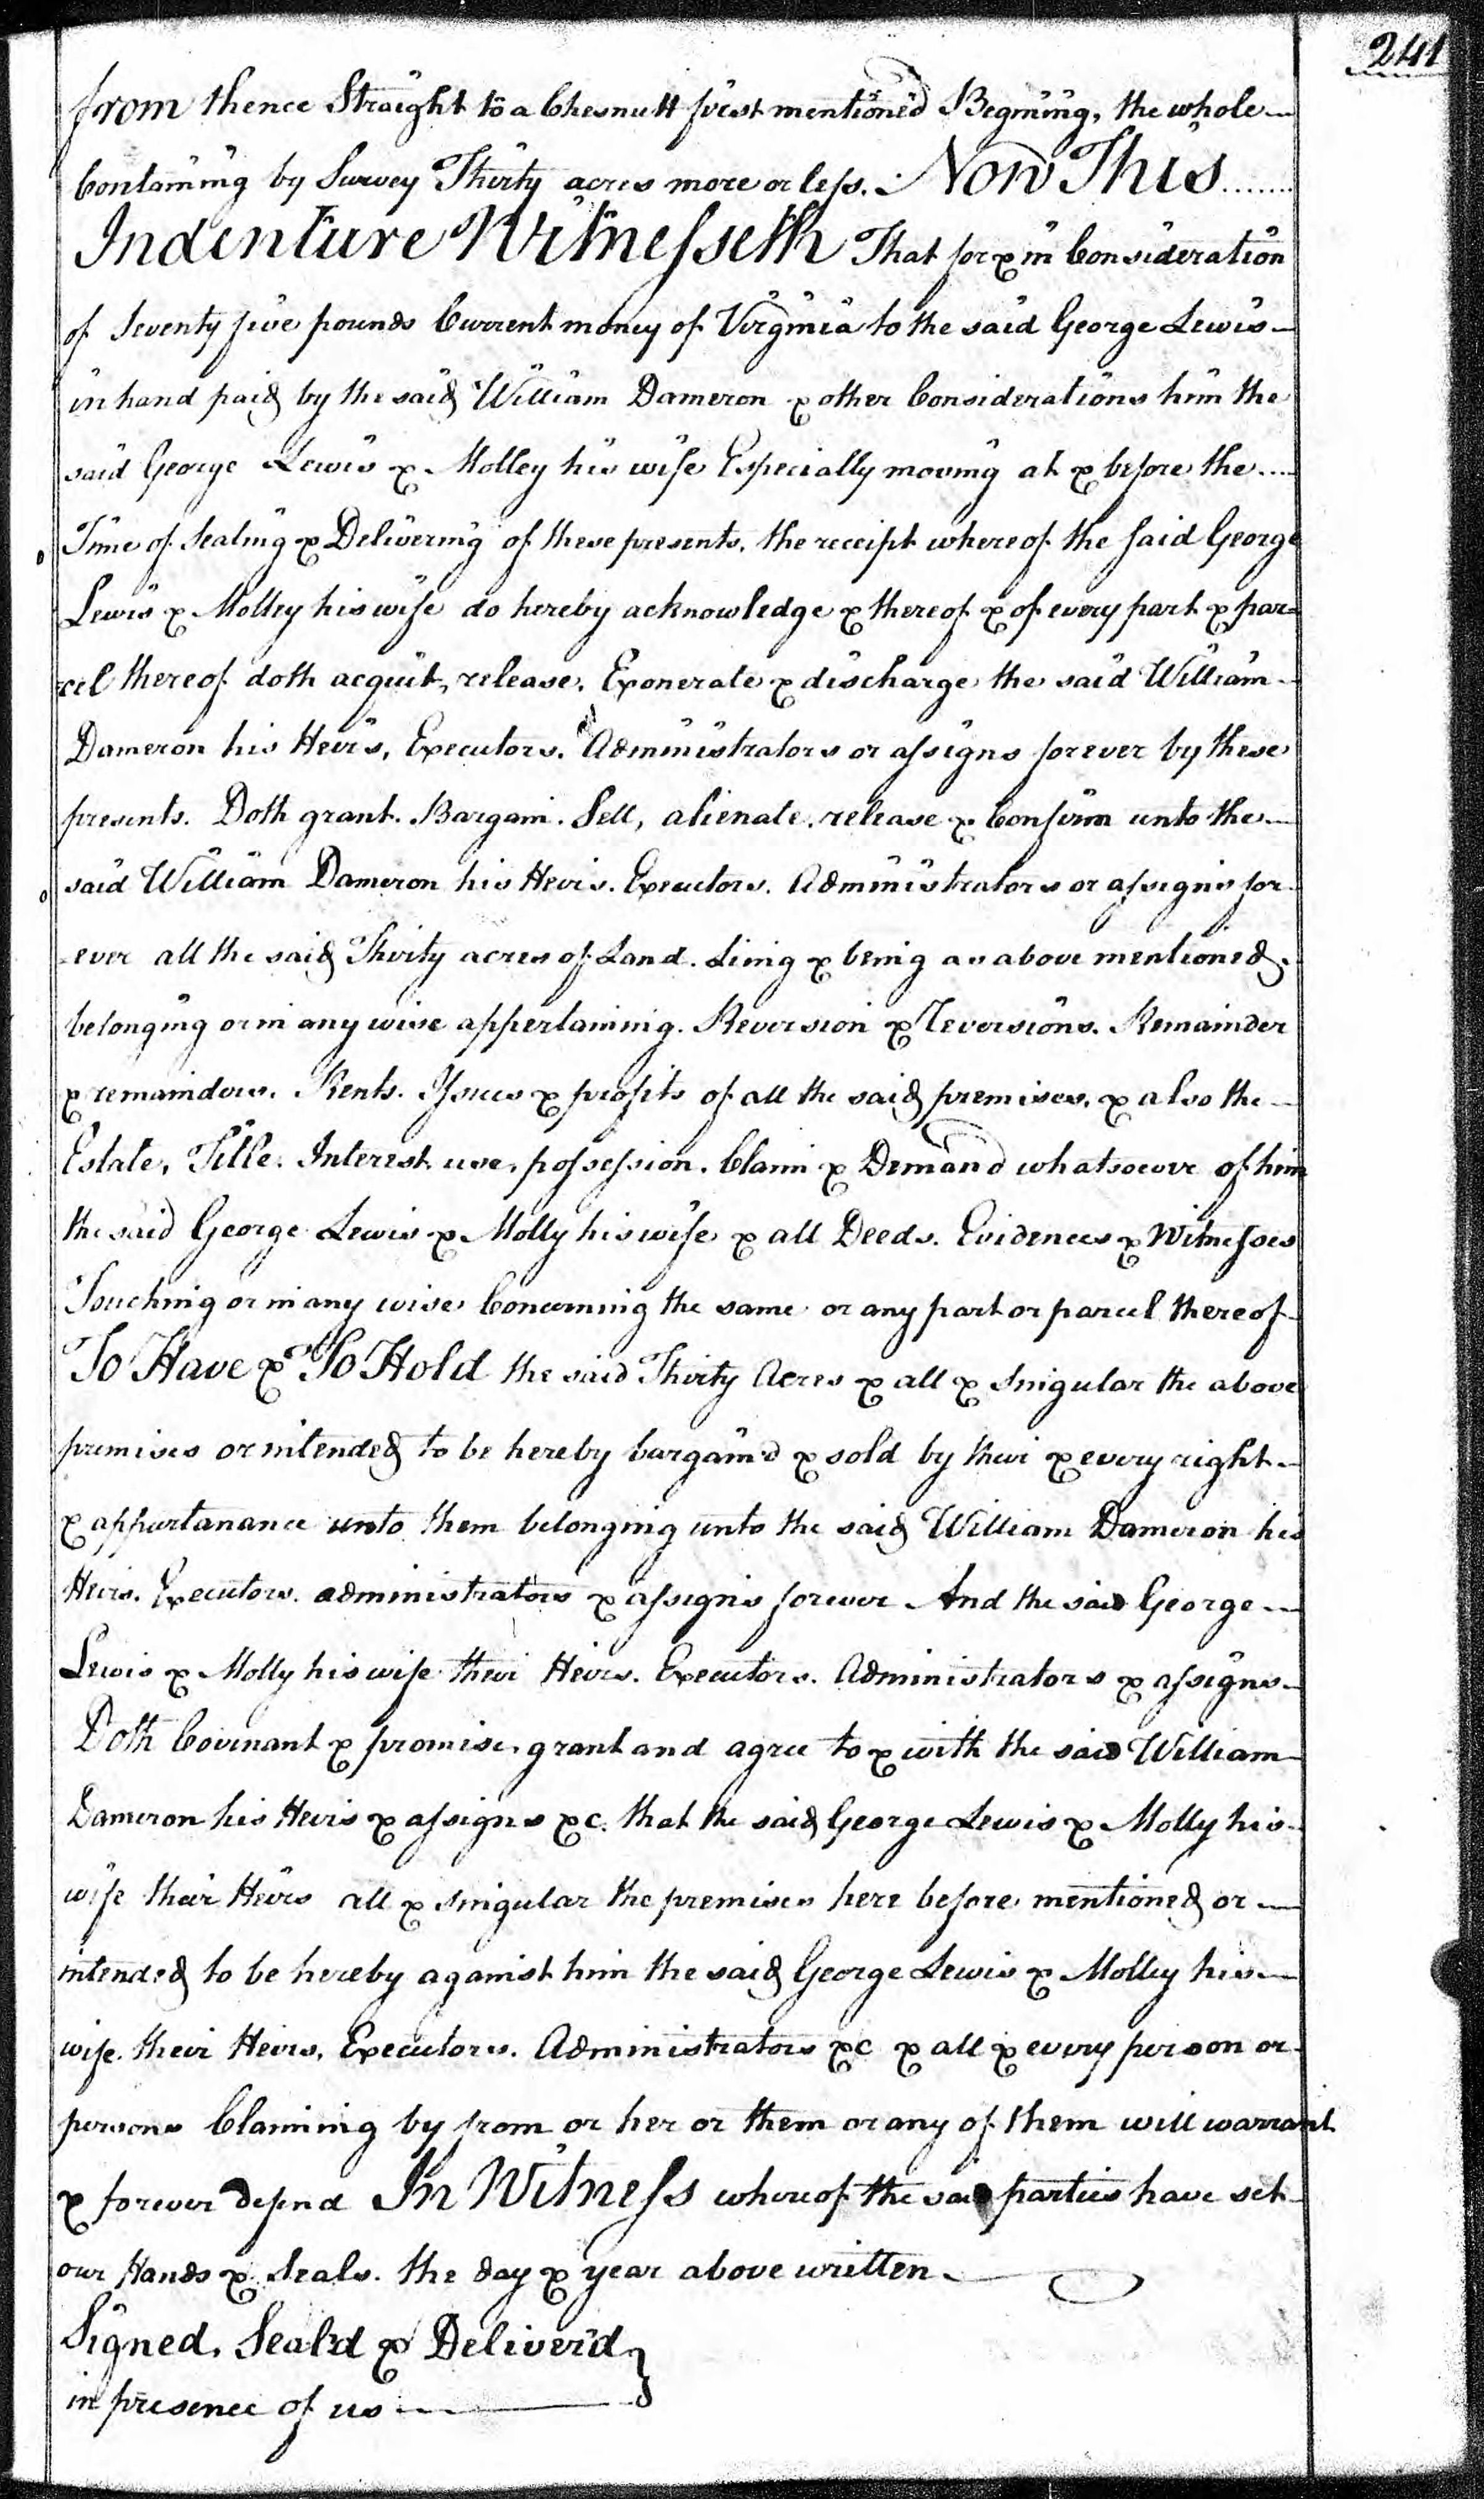 241
from thence Straight to a Chesnutt first mentioned Begining, the whole
Containing by Survey Thirty acres more or less. Now This.......
Indenture Witnesseth That for & in Consideration
of Seventy five pounds Current money of Virginia to the said George Lewis
in hand paid by the said William Dameron & other Considerations him the
said George Lewis & Molley his wife Especially moving at & before the....
Time of Sealing & Delivering of these presents, the receipt whereof the said George
Lewis & Molley his wife do hereby acknowledge & thereof & of every part & par=
cel thereof doth acquit, release, Exonerate & discharge the said William
Dameron his Heirs, Executors, Administrators or assigns forever by these
presents. Doth grant. Bargain. Sell, alienate, release & Confirm unto the
said William Dameron his Heirs. Executors. Administrators or assigns for-
-ever all the said Thirty acres of Land. Liing & being as above mentioned.
belonging or in any wise appertaining. Reversion & Reversions. Remainder
& remainders. Rents. Issues & profits of all the said premises, & also the
Estate, Title. Interest use, possession. Claim & Demand whatsoever of him
the said George Lewis & Molly his wife & all Deeds. Evidences & Witnesses
Touching or in any wise Concerning the same or any part or parcel thereof
To Have & To Hold the said Thirty Acres & all & Singular the above
premises or intended to be hereby bargain'd & sold by their & every right
& appurtanance unto them belonging unto the said William Dameron his
Heirs. Executors. administrators & assigns forever And the said George
Lewis & Molly his wife their Heirs. Executors. Administrators & assigns
Doth Covenant & promise, grant and agree to & with the said William
Dameron his Heirs & assigns &c. that the said George Lewis & Molly his
wife their Heirs all & Singular the premises here before mentioned or
intended to be hereby against him the said George Lewis & Molley his
wife. their Heirs, Executors. Administrators &c & all & every person or
persons Claiming by from or her or them or any of them will warrant
& forever defend In Witness whereof the said parties have set
our Hands & Seals. the day & year above written
Signed, Seal'd & Deliver'd
in presence of us